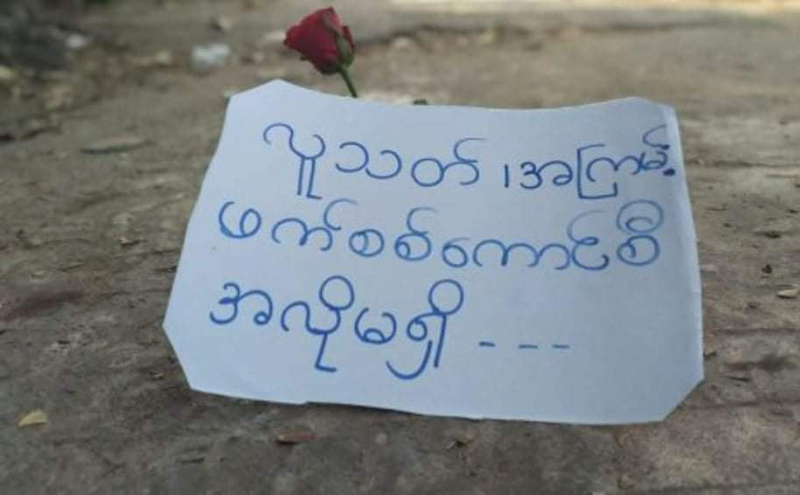 လူသတ် ၊အကြမ်း
ဖက်စစ်ကောင်စီ
အလိုမရှိ - - -